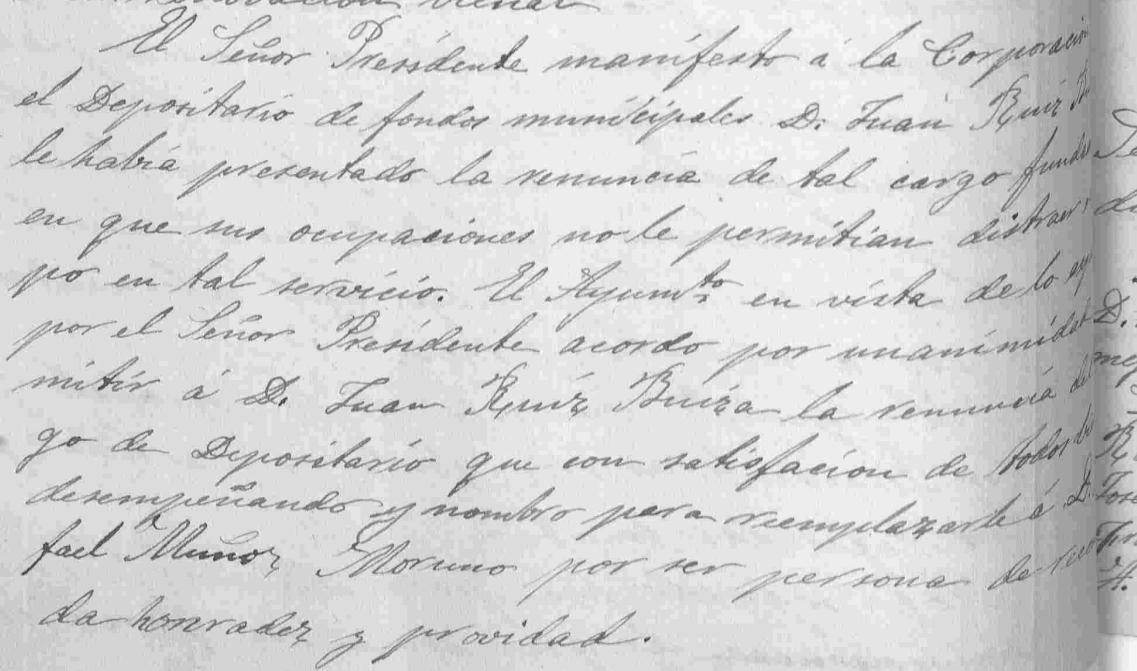 renovacion bienal
El Señor Presidente manifesto á la Corporacion
el Depositario de fondos municipales D. Juan Ruiz
le había presentado la renuncia de tal cargo funda
en que sus ocupaciones no le permitian distraer
po en tal servicio. El Ayumto en vista de lo
por el Señor Presidente acordo por unanimidad
mitir á D. Juan Ruíz Buiza la renuncia del
go de Depositario que con satisfacion de todos
desempeñando y nombro para reemplazarle á D.
fael Muñoz Moruno por ser persona de
da honradez y providad.